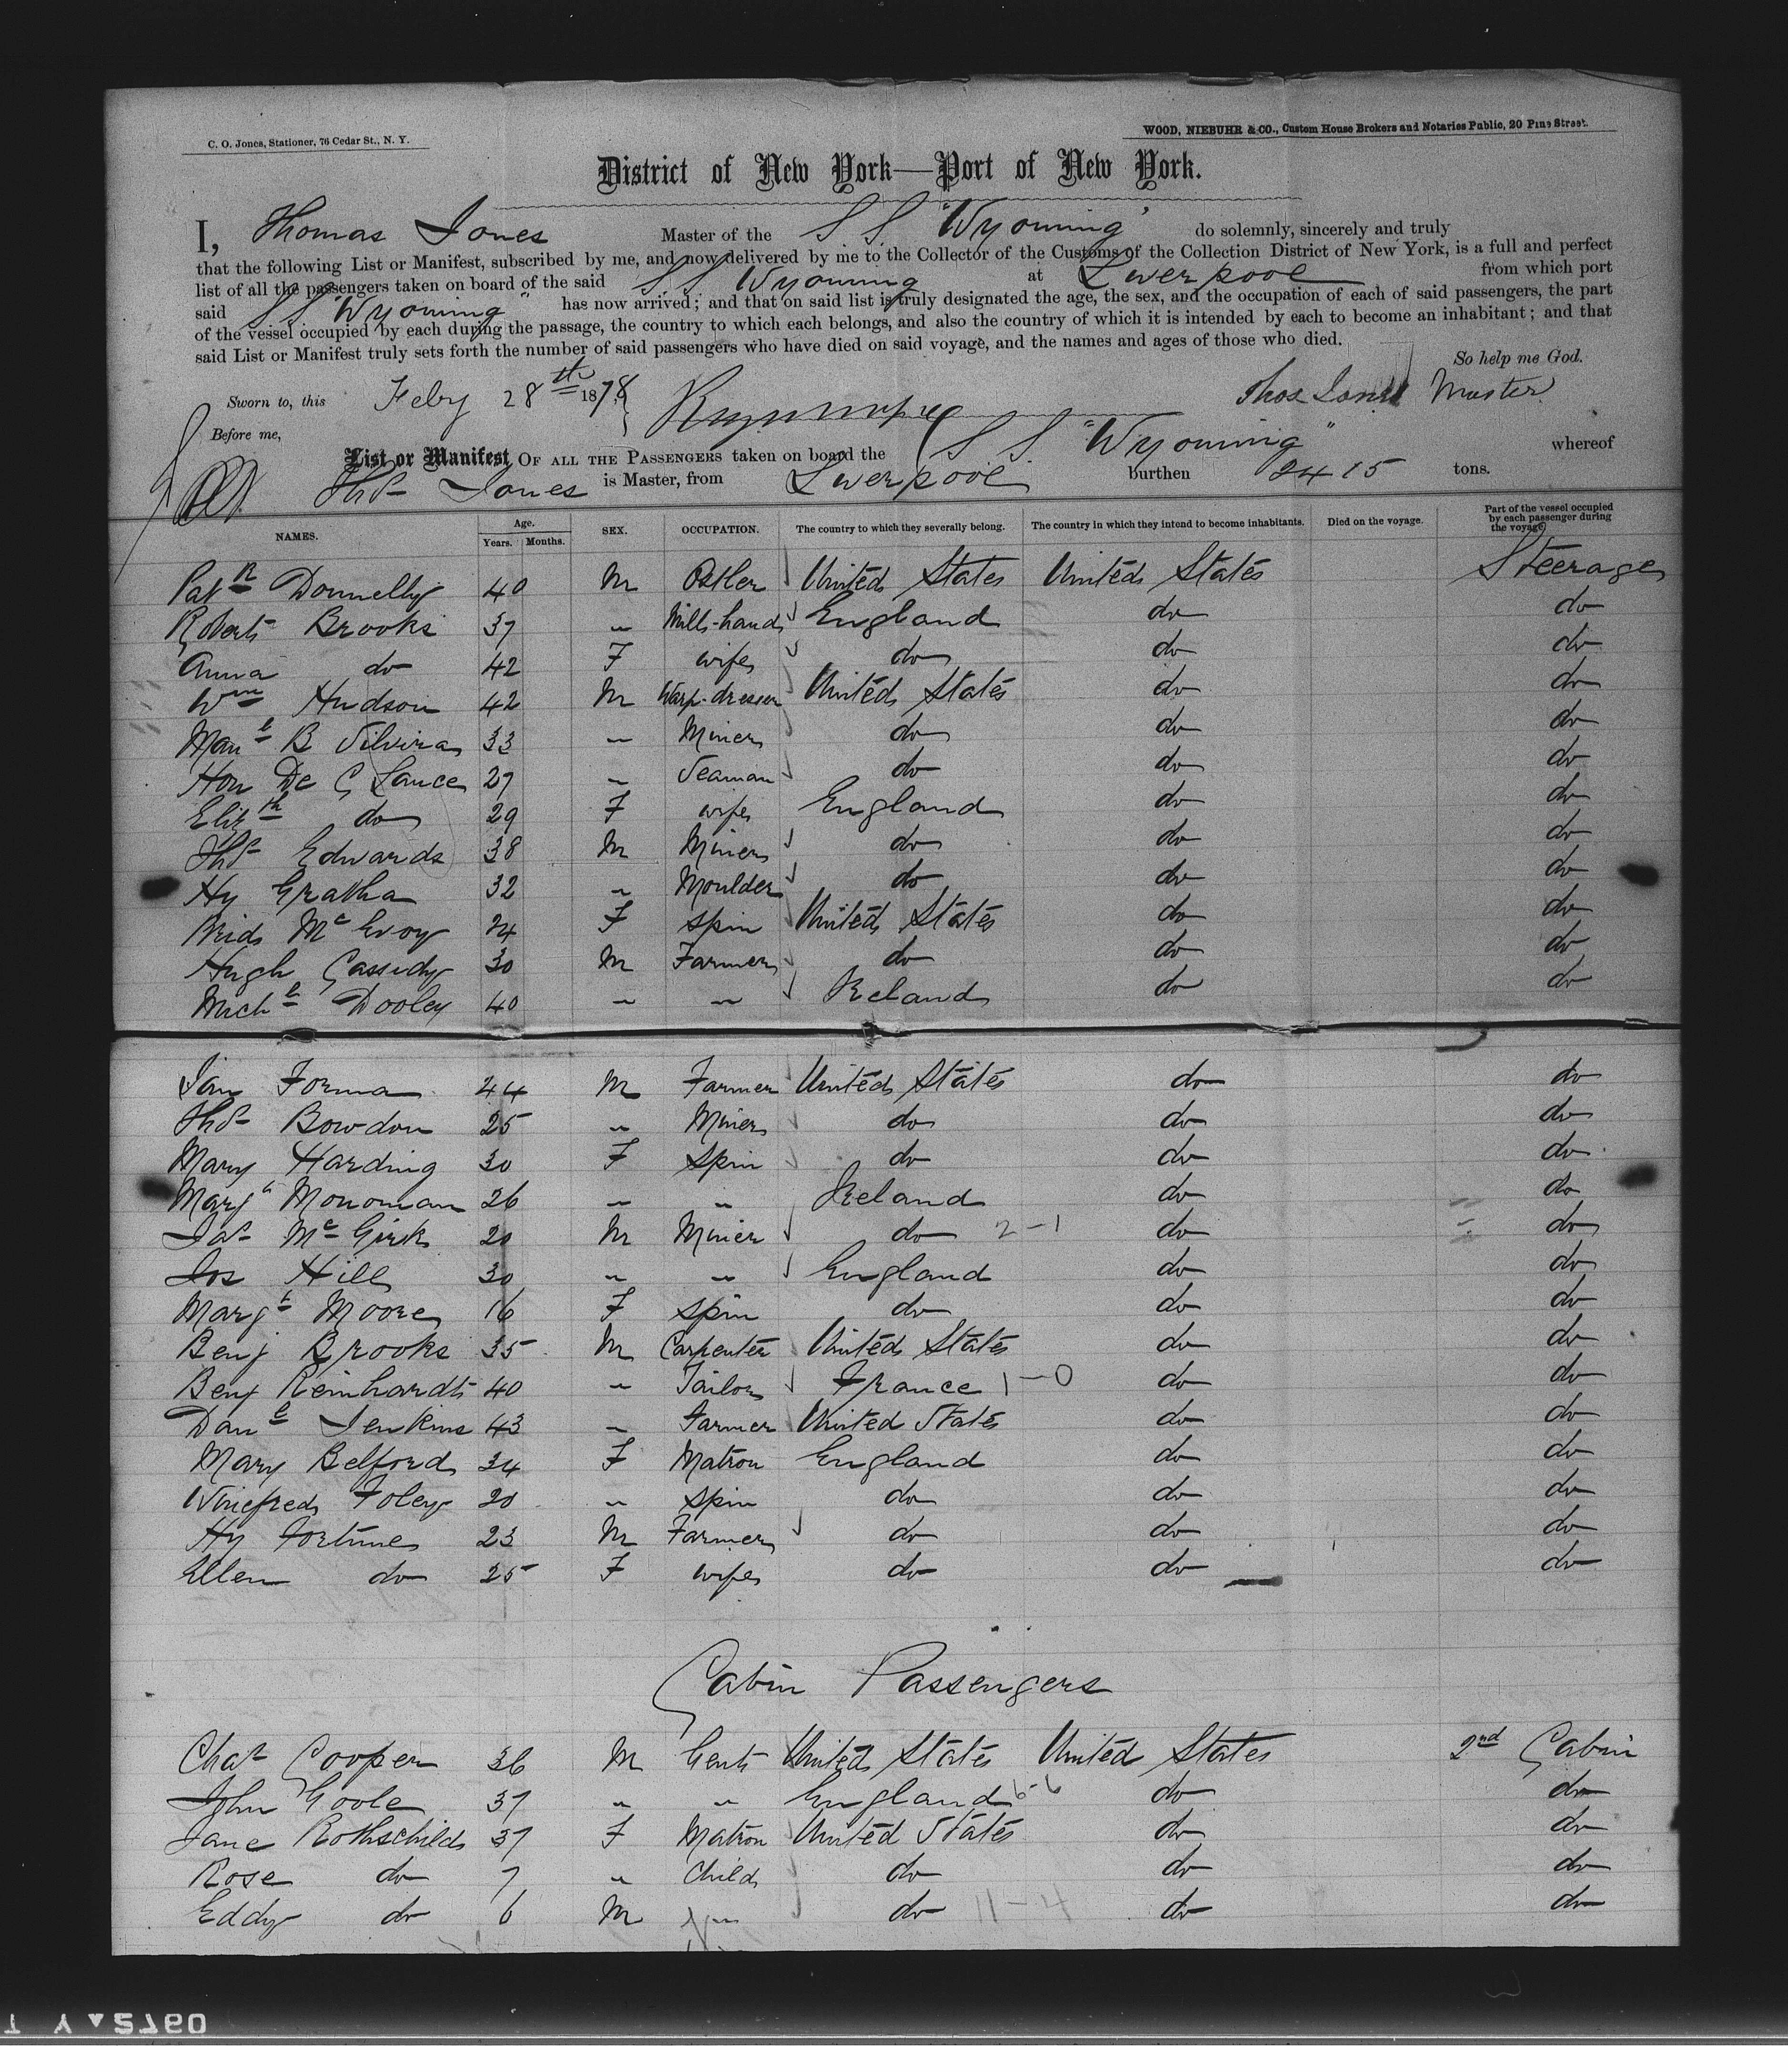 C. O. Jones, Stationer, 76 Cedar St., N. Y.
WOOD, NIEBUHR & CO., Custom House Brokers and Notaries Public, 20 Pine Street.
District of New York—Port of New York.
I, Thomas Jones Master of the S S "Wyoming" do solemnly, sincerely and truly
that the following List or Manifest, subscribed by me, and now delivered by me to the Collector of the Customs of the Collection District of New York, is a full and perfect
list of all the passengers taken on board of the said S S Wyoming at Liverpool from which port
said S S "Wyoming" has now arrived; and that on said list is truly designated the age, the sex, and the occupation of each of said passengers, the part
of the vessel occupied by each during the passage, the country to which each belongs, and also the country of which it is intended by each to become an inhabitant; and that
said List or Manifest truly sets forth the number of said passengers who have died on said voyage, and the names and ages of those who died.
So help me God.
Sworn to, this Feby 28th 1878 Thos Jones Master
Before me,
List or Manifest OF ALL THE PASSENGERS taken on board the S S "Wyoming" whereof
Thos Jones is Master, from Liverpool burthen 2415 tons.
NAMES. Age. Years. Months. SEX. OCCUPATION. The country to which they severally belong. The country in which they intend to become inhabitants. Died on the voyage. Part of the vessel occupied by each passenger during the voyage
Patk Donnelly 40 M Ostler United States United States Steerage
Robert Brooks 37 " Mill-hand England do do
Anna do 42 F wife do do do
Wm Hudson 42 M Warp-dresser United States do do
Manl B Silvira 33 " Miner do do do
Hon De C Lance 27 " Seaman do do do
Elizth do 29 F wife England do do
Thos Edwards 38 M Miner do do do
Hy Gratha 32 " Moulder do do do
Brid McEvoy 24 F spin United States do do
Hugh Cassidy 30 M Farmer do do do
Michl Dooley 40 " " Ireland do do
Jan Forma 44 M Farmer United States do do
Thos Bowdon 25 " Miner do do do
Mary Harding 30 F spin do do do
Mary Monoman 26 " " Ireland do do
Jas McGirk 20 M Miner do 2-1 do do
Jos Hill 30 " " England do do
Margt Moore 16 F spin do do do
Benj Brooks 35 M Carpenter United States do do
Benj Reinhardt 40 " Tailor France 1-0 do do
Danl Jenkins 43 " Farmer United States do do
Mary Belford 34 F Matron England do do
Winefred Foley 20 " spin do do do
Hy Fortune 23 M Farmer do do do
Ellen do 25 F wife do do do
Cabin Passengers
Chas Cooper 36 M Gent United States United States 2nd Cabin
John Goole 37 " " England 6-6 do do
Jane Rothschild 37 F Matron United States do do
Rose do 7 " Child do do do
Eddy do 6 M " do 11-4 do do